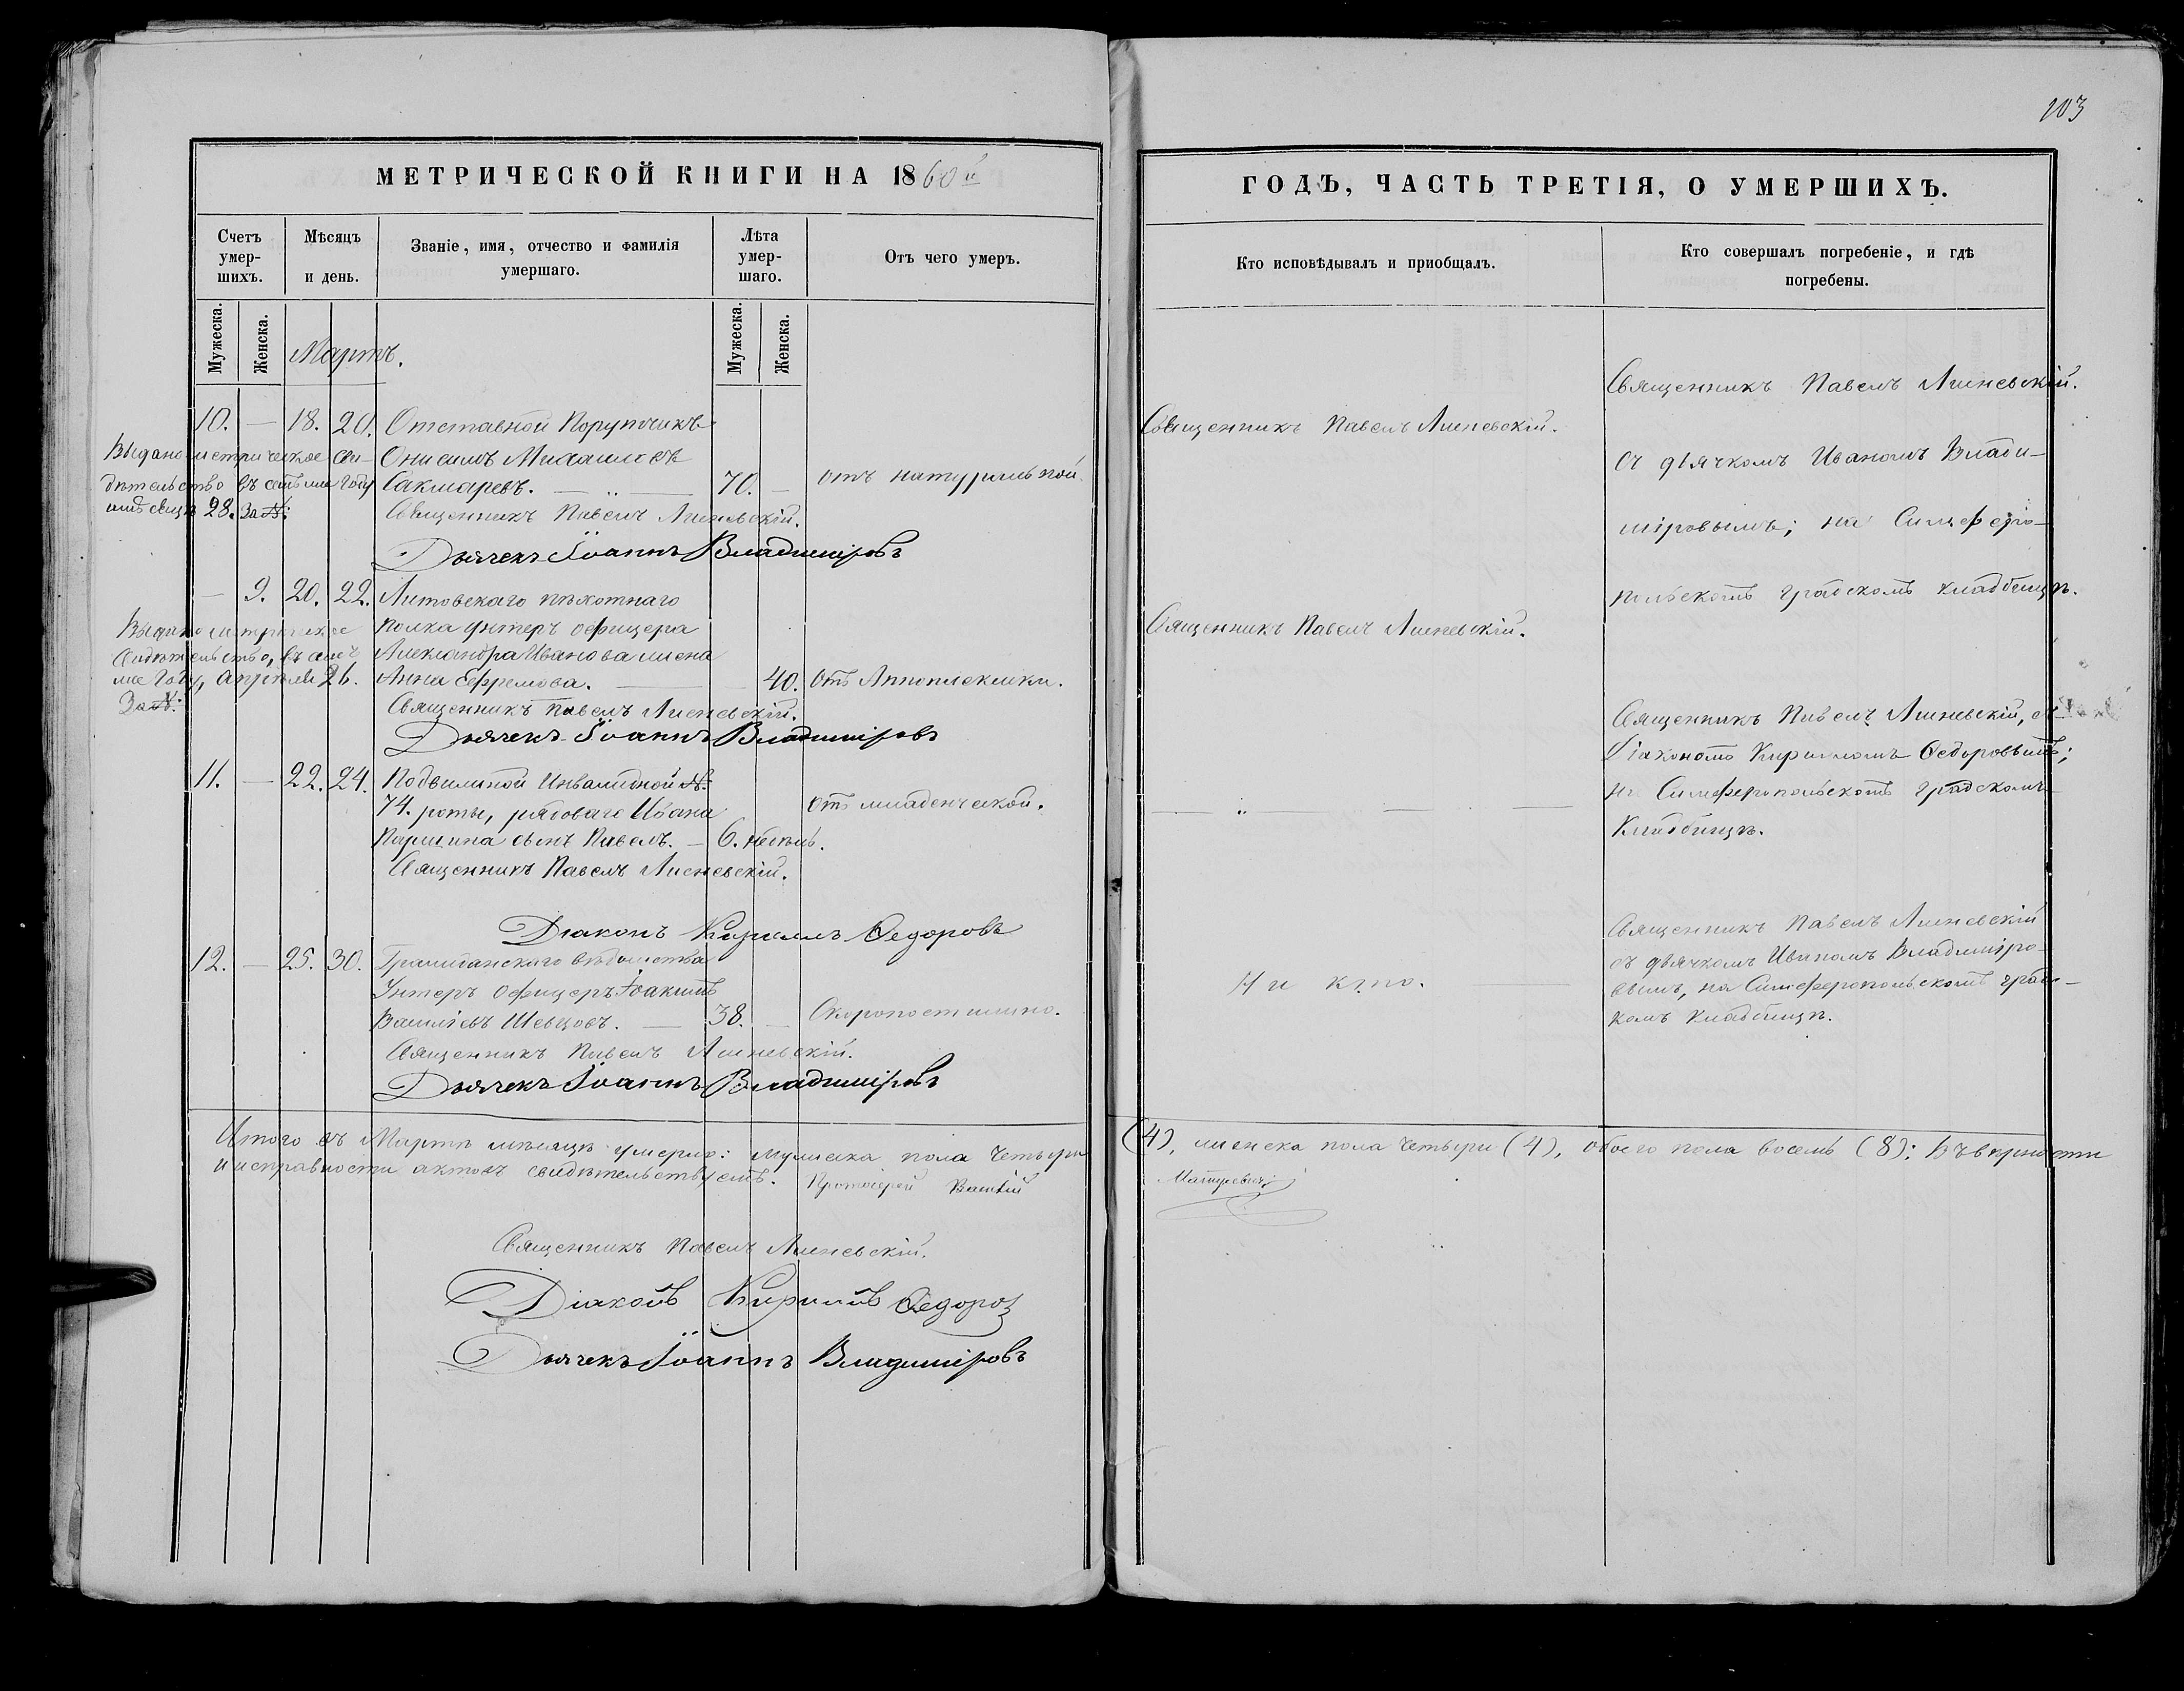 МЕТРИЧЕСКОЙ КНИГИ НА 1860й
Счетъ умер-шихъ.
Мѣсяцъ и день.
Званіе, имя, отчество и фамилія умершаго.
Лѣта умер-шаго.
Отъ чего умеръ.
Мужеска.
Женска.
Мартъ.
Мужеска.
Женска.
10. — 18. 20. Отставной Порутчикъ
Онисимъ Михаиловъ
Сакмаревъ. — „ — 70. — отъ натуральной
Священникъ Павелъ Лисневскій.
Дьячекъ Іоаннъ Владиміровъ
Выдано метрическое сви-
дѣтельство въ семъ же году
28. За №:
— 9. 20. 22. Литовскаго пѣхотнаго
полка унтеръ офицера
Александра Иванова жена
Анна Ефремова. — 40. отъ Апоплексики.
Священникъ Павелъ Лисневскій.
Дьячекъ Іоаннъ Владиміровъ
Выдано метрическое
Свидѣтельство, въ семъ
же году, Апрѣля 26.
За №:
11. — 22. 24. Подвижной Инвалидной №
74. роты, рядоваго Ивана
сынъ Павелъ. — 6. недѣль. отъ младенческой.
Священникъ Павелъ Лисневскій.
Діаконъ Кириллъ Ѳедоровъ
12. — 25. 30. Гражданскаго вѣдомства
Унтеръ Офицеръ Іоакимъ
Василіевъ Шевцовъ. — 38. — Скоропостижно.
Священникъ Павелъ Лисневскій.
Дьячекъ Іоаннъ Владиміровъ
Итого въ Мартѣ мѣсяцѣ умерло: мужеска пола четыри
и исправности актовъ свидѣтельствуемъ. Протоіерей
Священникъ Павелъ Лисневскій.
Діаконъ Кириллъ Ѳедоровъ
Дьячекъ Іоаннъ Владиміровъ
103
ГОДЪ, ЧАСТЬ ТРЕТІЯ, О УМЕРШИХЪ.
Кто исповѣдывалъ и пріобщалъ.
Кто совершалъ погребеніе, и гдѣ погребены.
Священникъ Павелъ Лисневскій.
Священникъ Павелъ Лисневскій.
съ дьячкомъ Иваномъ Влади-
міровымъ; на Симферо-
польскомъ градскомъ кладбищѣ.
Священникъ Павелъ Лисневскій.
Священникъ Павелъ Лисневскій, съ
Діакономъ Кирилломъ Ѳедоровымъ;
на Симферопольскомъ градскомъ
Кладбищѣ.
— „ — —
Священникъ Павелъ Лисневскій
съ дьячкомъ Иваномъ Владиміро-
вымъ, на Симферопольскомъ град-
комъ кладбищѣ.
Ни кто.
(4), женска пола четыри (4), обоего пола восемь (8): Въ вѣрности